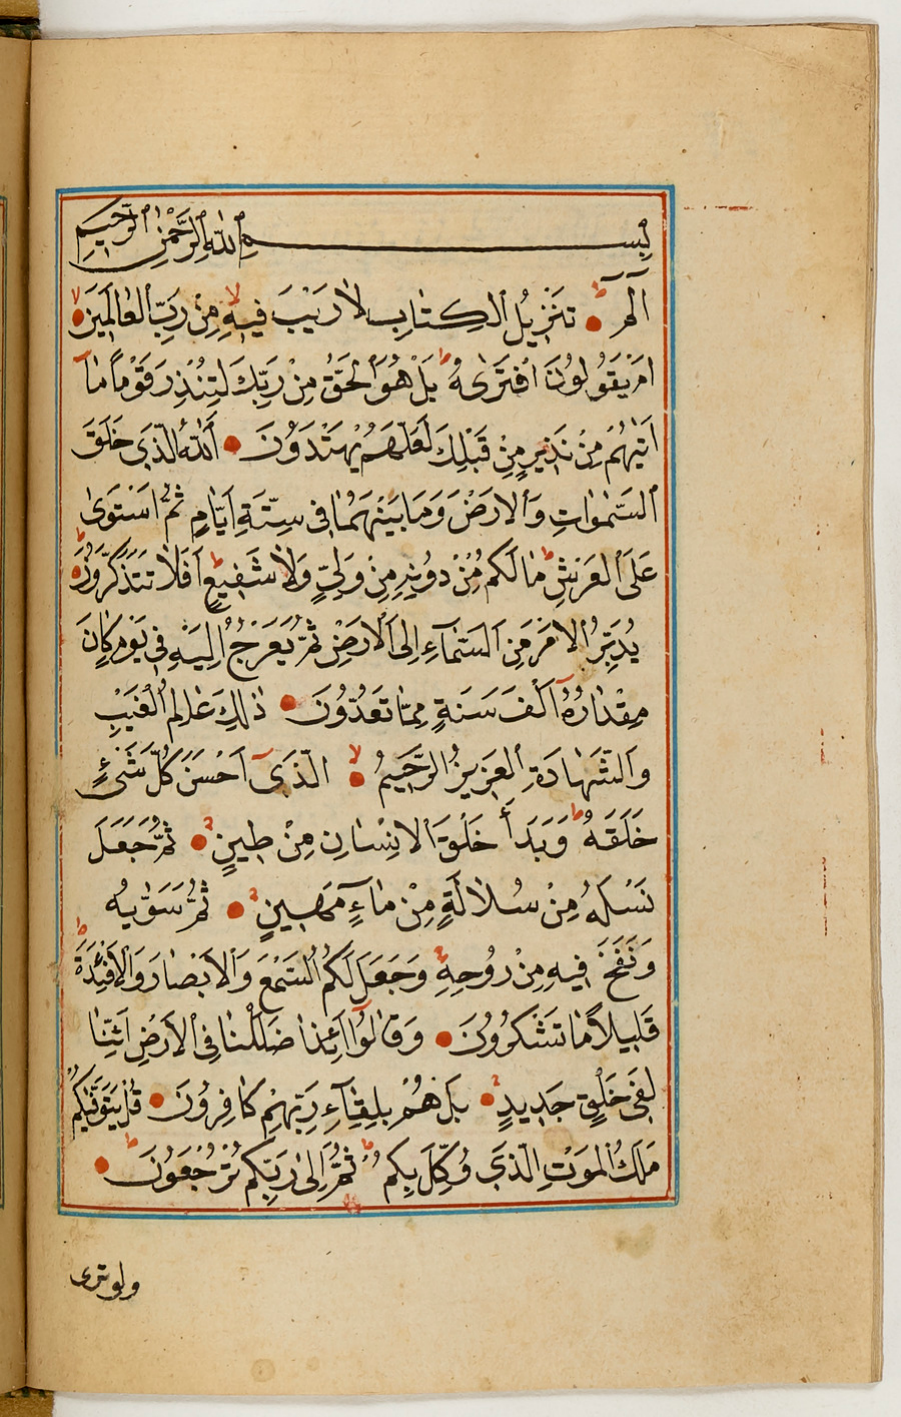 بِسْمِ اللّٰهِ الرَّحْمٰنِ الرَّحِيمِ
الٓمٓ ۚ تَنْزِيلُ الْكِتَابِ لَا رَيْبَ فِيهِ مِنْ رَبِّ الْعَالَمِينَ ۙ
اَمْ يَقُولُونَ افْتَرٰىهُ ۚ بَلْ هُوَ الْحَقُّ مِنْ رَبِّكَ لِتُنْذِرَ قَوْمًا مَٓا
اَتٰيهُمْ مِنْ نَذِيرٍ مِنْ قَبْلِكَ لَعَلَّهُمْ يَهْتَدُونَ اَللّٰهُ الَّذِي خَلَقَ
السَّمٰوَاتِ وَالْاَرْضَ وَمَا بَيْنَهُمَا فِي سِتَّةِ اَيَّامٍ ثُمَّ اسْتَوٰى
عَلَى الْعَرْشِ ۜ مَا لَكُمْ مِنْ دُونِهِ مِنْ وَلِيٍّ وَلَا شَفِيعٍ ۜ اَفَلَا تَتَذَكَّرُونَ
يُدَبِّرُ الْاَمْرَ مِنَ السَّمَٓاءِ اِلَى الْاَرْضِ ثُمَّ يَعْرُجُ اِلَيْهِ فِي يَوْمٍ كَانَ
مِقْدَارُهُٓ اَلْفَ سَنَةٍ مِمَّا تَعُدُّونَ ذٰلِكَ عَالِمُ الْغَيْبِ
وَالشَّهَادَةِ الْعَزِيزُ الرَّحِيمُ ۙ الَّذِٓي اَحْسَنَ كُلَّ شَيْءٍ
خَلَقَهُ وَبَدَاَ خَلْقَ الْاِنْسَانِ مِنْ طِينٍ ۚ ثُمَّ جَعَلَ
نَسْلَهُ مِنْ سُلَالَةٍ مِنْ مَٓاءٍ مَهِينٍ ۚ ثُمَّ سَوّٰيهُ
وَنَفَخَ فِيهِ مِنْ رُوحِهِ وَجَعَلَ لَكُمُ السَّمْعَ وَالْاَبْصَارَ وَالْاَفْئِدَةَ ۜ
قَلِيلًا مَا تَشْكُرُونَ وَقَالُٓوا اَئِذَا ضَلَلْنَا فِي الْاَرْضِ ائِنَّا
لَفِي خَلْقٍ جَدِيدٍ ۚ بَلْ هُمْ بِلِقَٓاءِ رَبِّهِمْ كَافِرُونَ قُلْ يَتَوَفّٰيكُمْ
مَلَكُ الْمَوْتِ الَّذِي وُكِّلَ بِكُمْ ثُمَّ اِلٰى رَبِّكُمْ تُرْجَعُونَ
ولو ترى